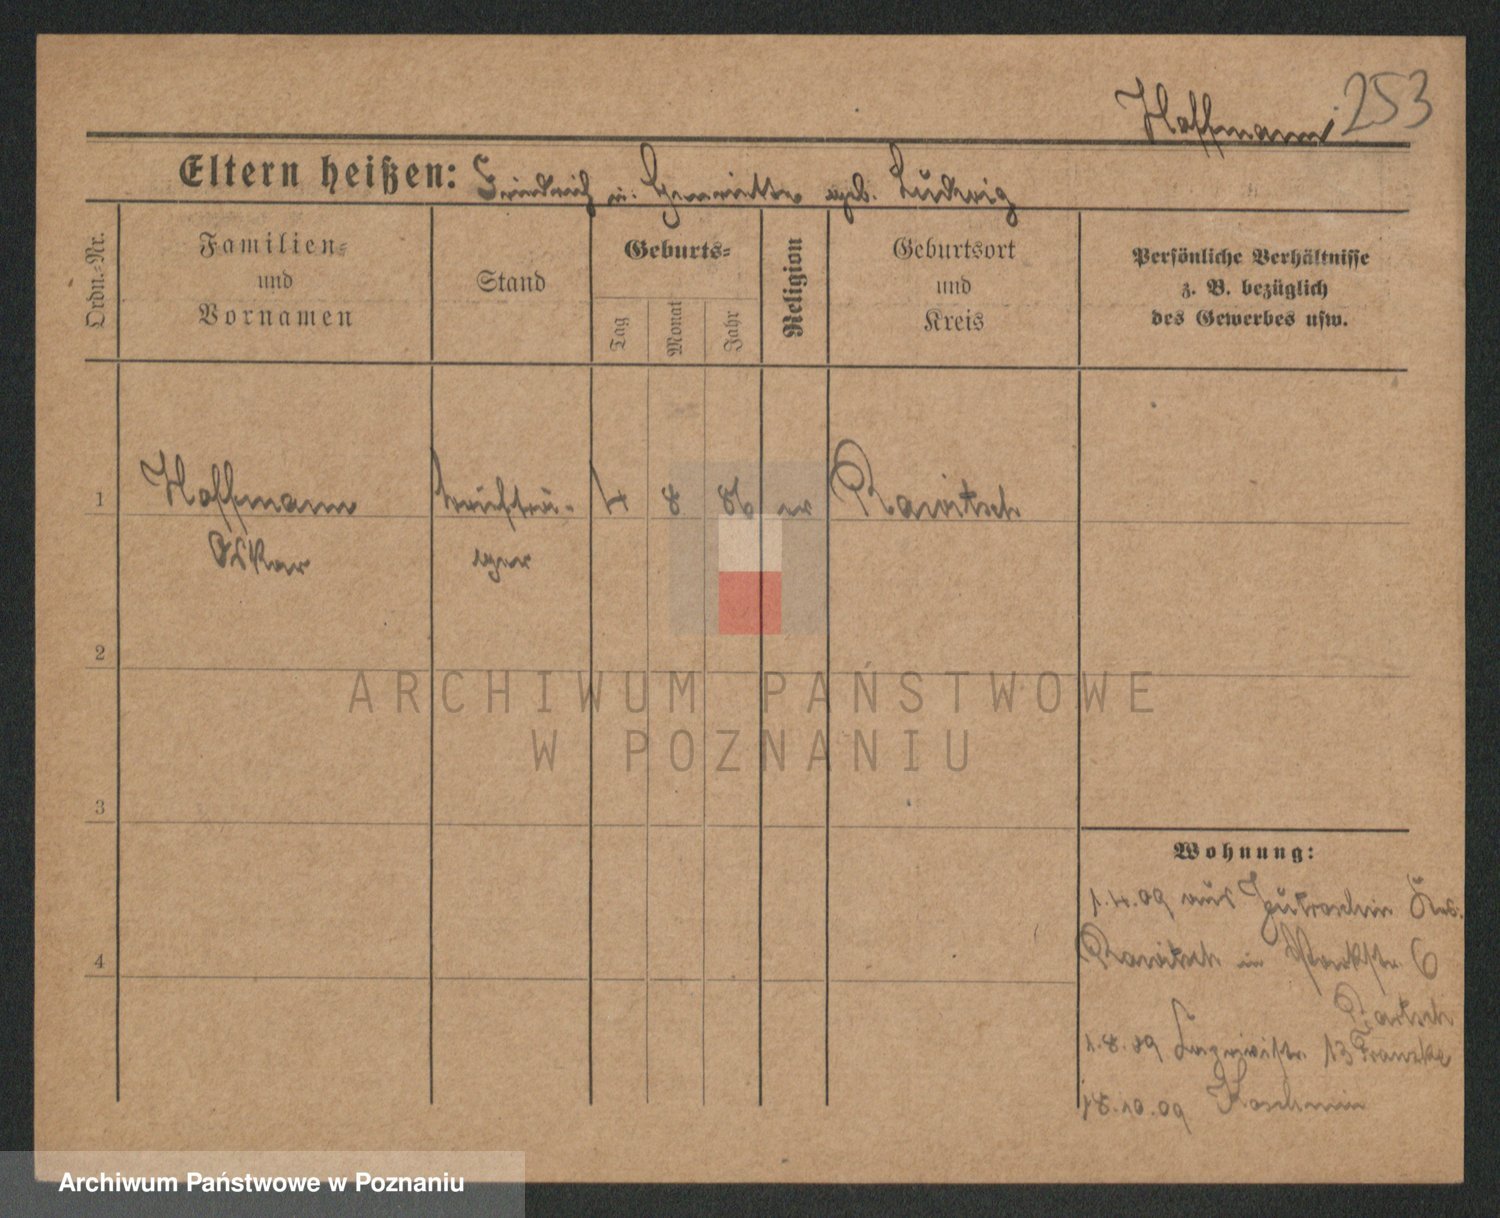 Hoffmann 253
Eltern heißen: Friedrich u. Henriette geb. Ludwig
Ordn.=Nr.
Familien=
und
Vornamen
Stand
Geburts=
Tag
Monat
Jahr
Religion
Geburtsort
und
Kreis
Persönliche Verhältnisse
z. B. bezüglich
des Gewerbes usw.
1 Hoffmann 4 8 86 ev Rawitsch
Oskar
2
3
4
ARCHIWUM PAŃSTWOWE
W POZNANIU
Wohnung:
1.4.09 aus Jutroschin Krs.
Rawitsch in Parkstr. 6
1.8.09 13 Franzke
18.10.09 Koschmin
Archiwum Państwowe w Poznaniu